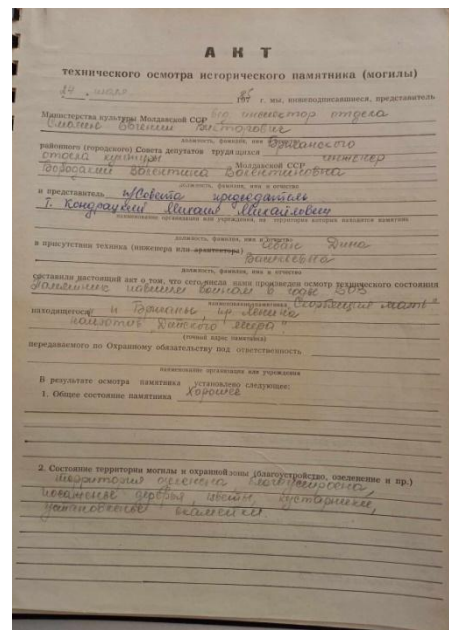 АКТ
технического осмотра исторического памятника (могилы)
24 " июля 198 г. мы, нижеподписавшиеся, представитель
Министерства культуры Молдавской ССР инспектор отдела
Евгений Викторович
должность, фамилия, имя Бричанского
районного (городского) Совета депутатов трудящихся
отдела культуры Молдавской ССР инженер
Валентина Валентиновна
должность, фамилия, имя и отчество
и представитель п/Совета председатель
т. Кондрацкий Михаил Михайлович
наименование организации или учреждения, на территории которых находится памятник
должность, фамилия, имя и отчество
в присутствии техника (инженера или архитектора) Чебан Дина
Васильевна
должность, фамилия, имя и отчество
составили настоящий акт о том, что сего числа нами произведен осмотр технического состояния
Памятник павшим воинам в годы ВОВ
наименование памятника "Скорбящая мать"
находящегося п Бричаны, пр Ленина
напротив "Детского мира"
(точный адрес памятника)
передаваемого по Охранному обязательству под ответственность
наименование организации или учреждения
В результате осмотра памятника установлено следующее:
1. Общее состояние памятника Хорошее
2. Состояние территории могилы и охранной зоны (благоустройство, озеленение и пр.)
территория озеленена благоустроена
посаженые деревья, цветы, кустарники,
установленые скамейки.